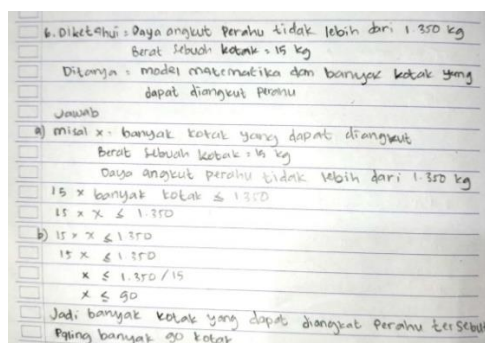 6. Diketahui : Daya angkut Perahu tidak lebih dari 1.350 kg
Berat Sebuah kotak = 15 kg
Ditanya : model matematika dan banyak kotak yang
dapat diangkut perahu
Jawab
a) misal x = banyak kotak yang dapat diangkut
Berat Sebuah kotak = 15 kg
Daya angkut Perahu tidak lebih dari 1.350 kg
15 × banyak kotak ≤ 1350
15 × x ≤ 1.350
b) 15 × x ≤ 1.350
15 x ≤ 1.350
x ≤ 1.350 / 15
x ≤ 90
Jadi banyak kotak yang dapat diangkat Perahu tersebut
Paling banyak 90 kotak